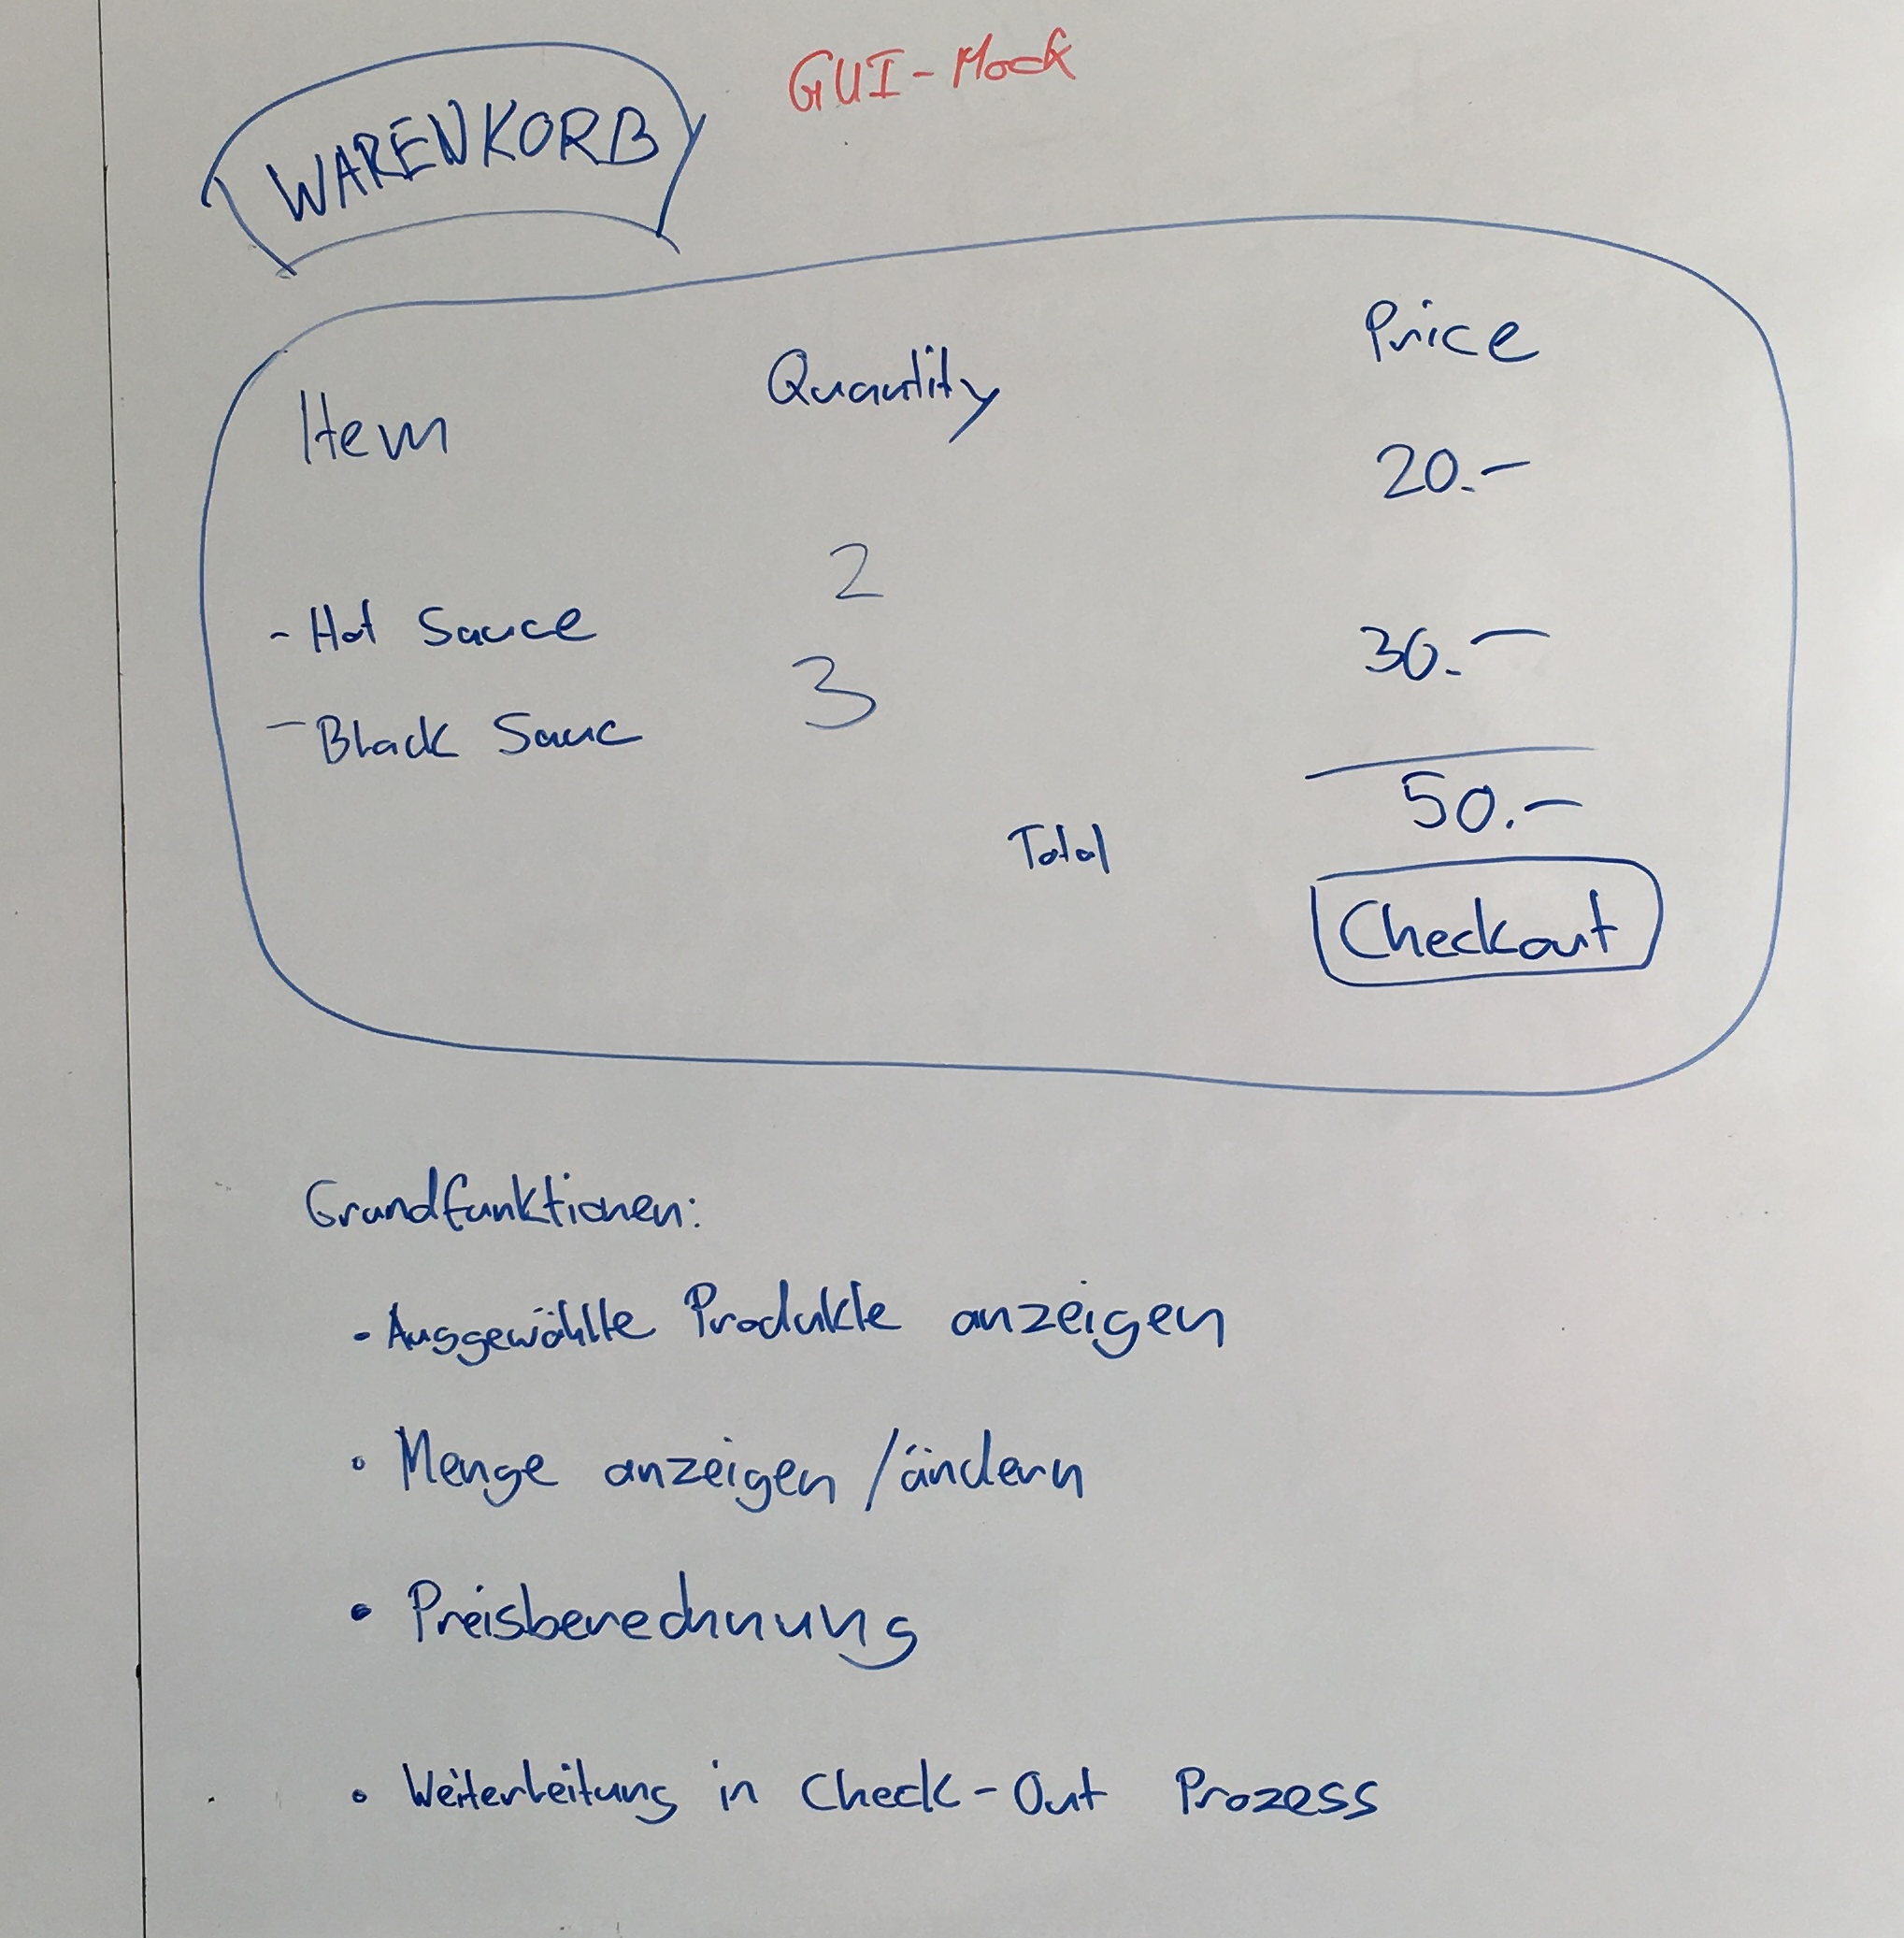 GUI-Mock
WARENKORB
Item Quantity Price
- Hot Sauce 2 20.-
- Black Sauc 3 30.-
Total 50.-
Checkout
Grundfunktionen:
- Ausgewählte Produkte anzeigen
• Menge anzeigen / ändern
• Preisberechnung
• Weiterleitung in Check-Out Prozess